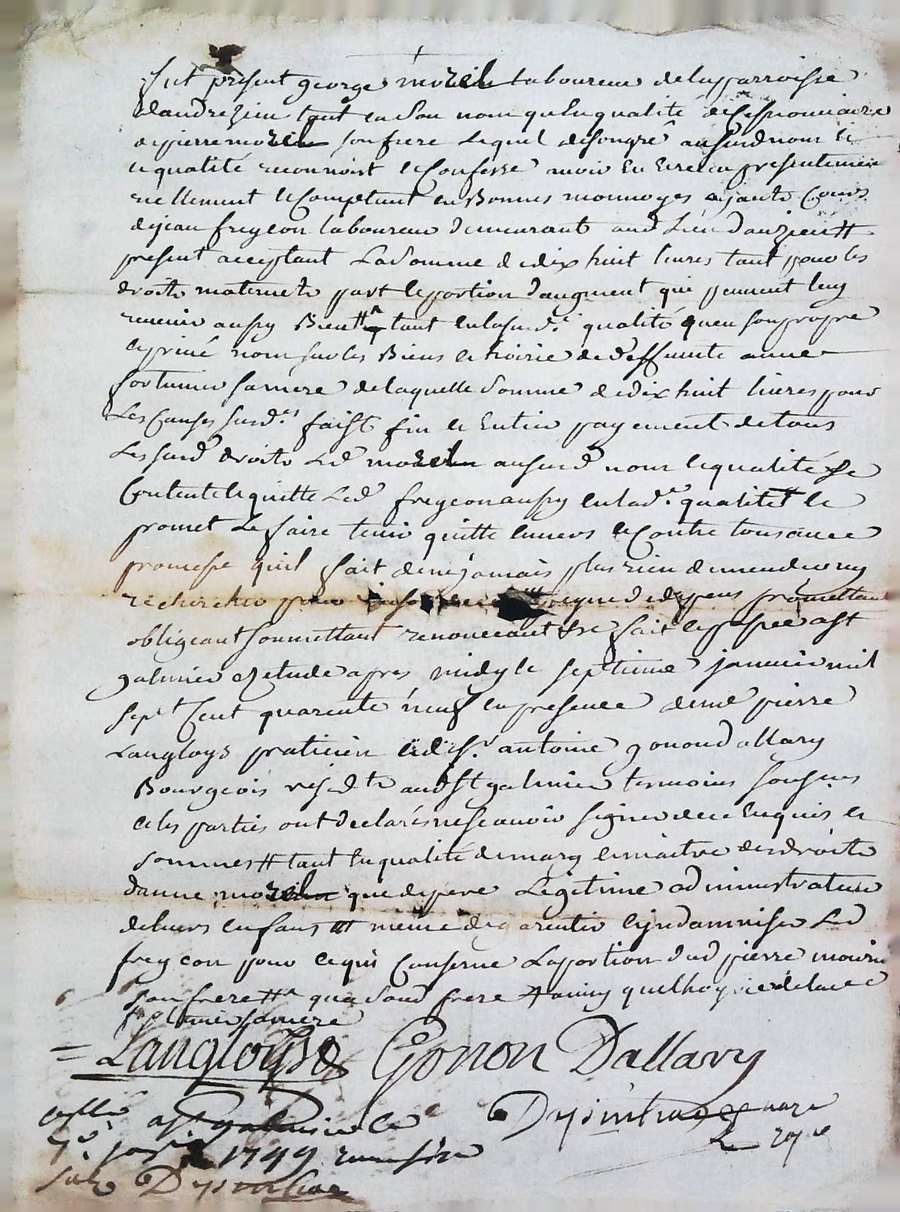 fut présent george morel laboureur de la parroisse
dandrezieu tant en son nom qu'en qualité de cessionnaire
de pierre morel son frere Lequel de son gré ausurd nom et
et qualité reconnoit et Confesse avoir eu et receu presentement
reellement et Comptant en Bonnes monnoyes ayants Cours
de jean freycon laboureur demeurant aud Lieu
present acceptant La somme de dix huit livres tant pour les
droits maternels part et portion d'augment qui peuvent luy
revenir aussy Bien tant en lasusd.e qualité qu'en son propre
et privé nom sur les Biens et hoirie de deffunte anne
fortunier sa mere de laquelle somme de dix huit livres pour
Les Causes susd.es faisst fin et Entier payement de tous
Les susd droits Led morel ausurd nom et qualité se
Contente et quitte Led freycon aussy en lad.e qualité et le
promet Le faire tenir quitte envers et Contre tous avec
promesse qu'il fait de ne jamais plus rien demender ny
rechercher pour de depens promettant
obligeant soumettant renonceant &c fait et passé a St
galmier Etude apres midy le septieme janvier mil
sept Cent quarente neuf en presence de me pierre
Langloys praticien et de s.r antoine gonon dallary
Bourgeois resid.ts aud St galmier temoins sousnés
et les parties ont declarés ne scavoir signer de ce Enquis et
sommés # tant en qualité de mary et maitre des droits
danne morel que de pere Legitime administrateur
de leurs enfans # meme de garentir et indamniser Led
freycon pour ce qui Conserne La portion dud pierre
son frere que sond frere
sa mere
Langloys Gonon Dallary
Dysimbrac
a St galmier le
janvier 1749
Dysimbrac